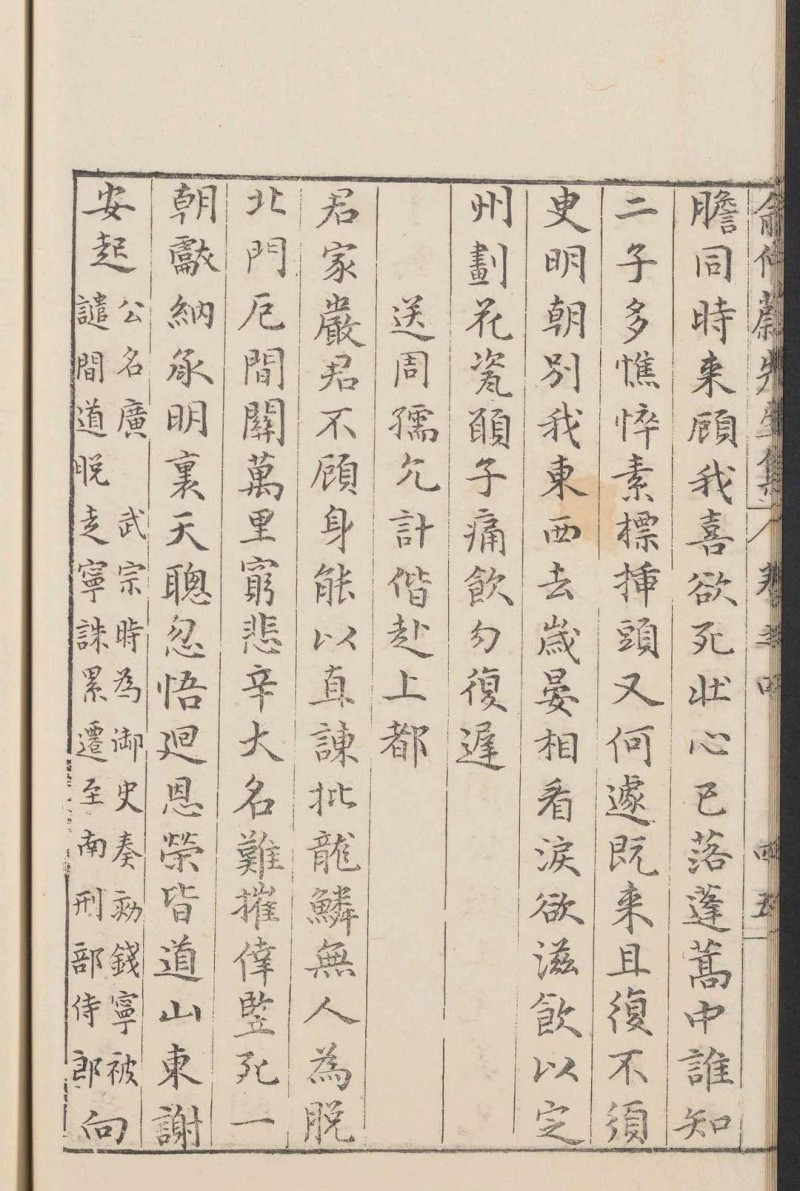 俞仲蔚先生集 卷之四
膽同時来顧我喜欲死壯心已落蓬蒿中誰知
二子多憔悴素標挿頭又何遽既来且復不須
吏明朝別我東西去歲晏相看淚欲滋飲以定
州劃花瓷願子痛飲勿復遲
送周孺允計偕赴上都
君家嚴君不顧身能以直諫批龍鱗無人為脫
北門厄間關萬里窮悲辛大名難摧倖竪死一
朝獻納承明裏天聰忽悟廻恩榮皆道山東謝
安起
公名廣武宗時為御史奏劾錢寧被
譴間道脫走寧誅累遷至南刑部侍郎
向